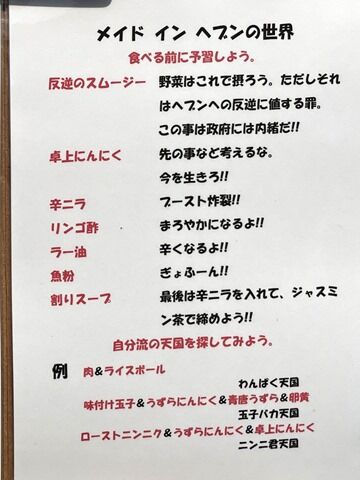 メイド イン ヘブンの世界
食べる前に予習しよう。
反逆のスムージー 野菜はこれで摂ろう。ただしそれ
はヘブンへの反逆に値する罪。
この事は政府には内緒だ!!
卓上にんにく 先の事など考えるな。
今を生きろ!!
辛ニラ ブースト炸裂!!
リンゴ酢 まろやかになるよ!!
ラー油 辛くなるよ!!
魚粉 ぎょふーん!!
割りスープ 最後は辛ニラを入れて、ジャスミ
ン茶で締めよう!!
自分流の天国を探してみよう。
例 肉&ライスボール
わんぱく天国
味付け玉子&うずらにんにく&青唐うずら&卵黄
玉子バカ天国
ローストニンニク&うずらにんにく&卓上にんにく
ニンニ君天国